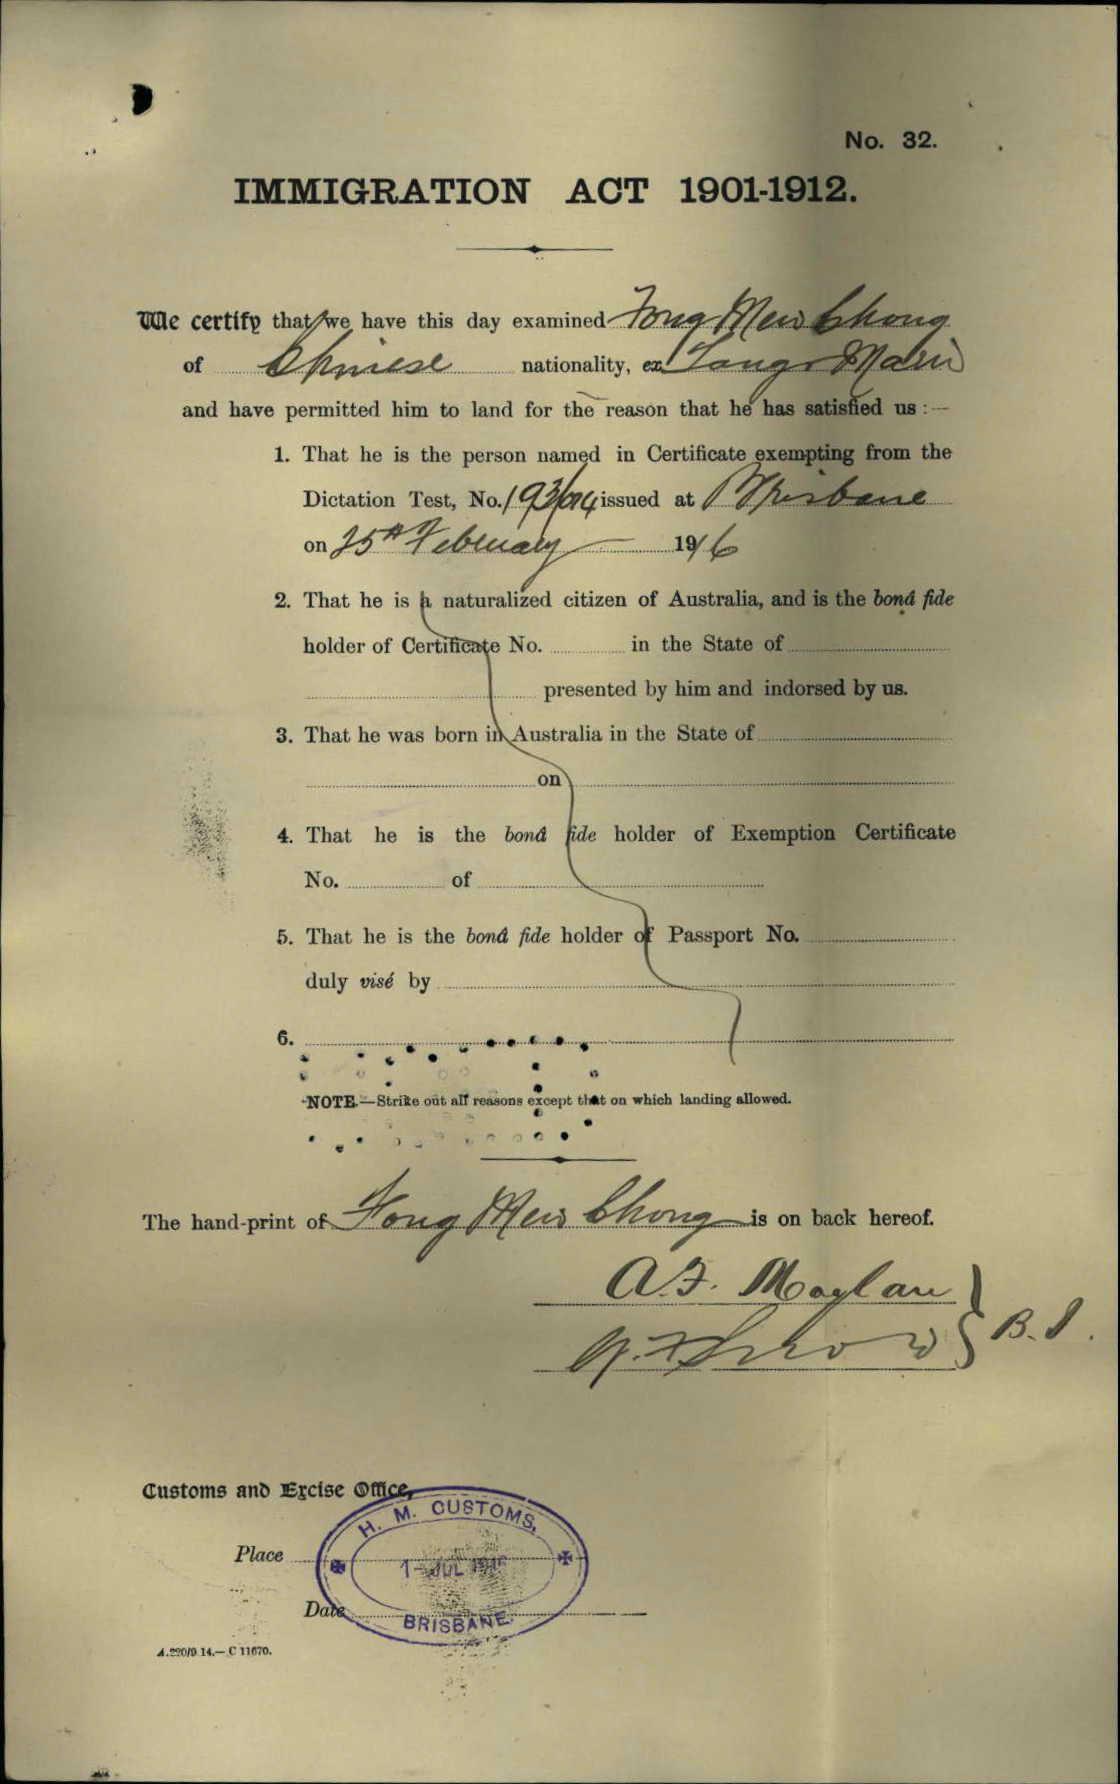 No. 32.
IMMIGRATION ACT 1901-1912.
We certify that we have this day examined Fong Mew Chong
of Chinese nationality, ex Tango Maru
and have permitted him to land for the reason that he has satisfied us :—
1. That he is the person named in Certificate exempting from the
Dictation Test, No. 193/ issued at Brisbane
on 25th February 1916
2. That he is a naturalized citizen of Australia, and is the bonâ fide
holder of Certificate No. in the State of
presented by him and indorsed by us.
3. That he was born in Australia in the State of
on
4. That he is the bonâ fide holder of Exemption Certificate
No. of
5. That he is the bonâ fide holder of Passport No.
duly visé by
6.
NOTE.—Strike out all reasons except that on which landing allowed.
The hand-print of Fong Mew Chong is on back hereof.
A.F.
B. I.
Customs and Excise Office,
H. M. CUSTOMS,
Place
1 - JUL
Date
BRISBANE.
A.220/9.14.—C 11670.